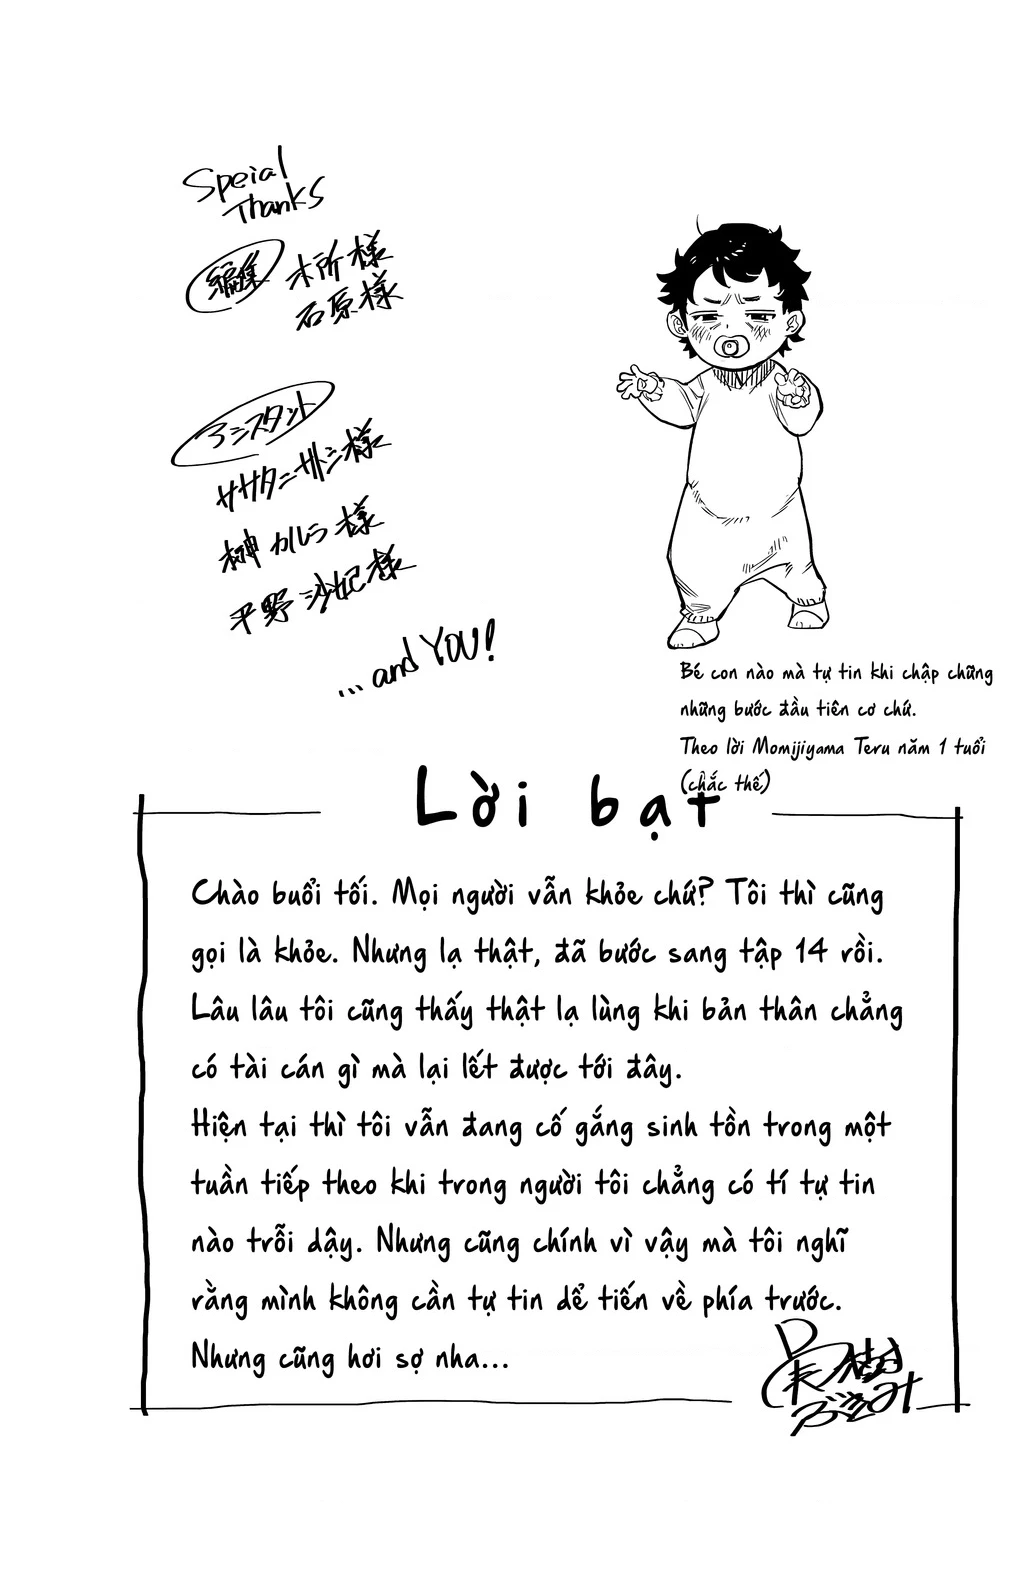 Speial
Thanks
編集 木所様
石原様
アシスタント
ササタニサトシ様
榊カルラ様
平野沙妃様
...and YOU!
Bé con nào mà tự tin khi chập chững
những bước đầu tiên cơ chứ.
Theo lời Momijiyama Teru năm 1 tuổi
(chắc thế)
Lời bạt
Chào buổi tối. Mọi người vẫn khỏe chứ? Tôi thì cũng
gọi là khỏe. Nhưng lạ thật, đã bước sang tập 14 rồi.
Lâu lâu tôi cũng thấy thật lạ lùng khi bản thân chẳng
có tài cán gì mà lại lết được tới đây.
Hiện tại thì tôi vẫn đang cố gắng sinh tồn trong một
tuần tiếp theo khi trong người tôi chẳng có tí tự tin
nào trỗi dậy. Nhưng cũng chính vì vậy mà tôi nghĩ
rằng mình không cần tự tin dể tiến về phía trước.
Nhưng cũng hơi sợ nha...